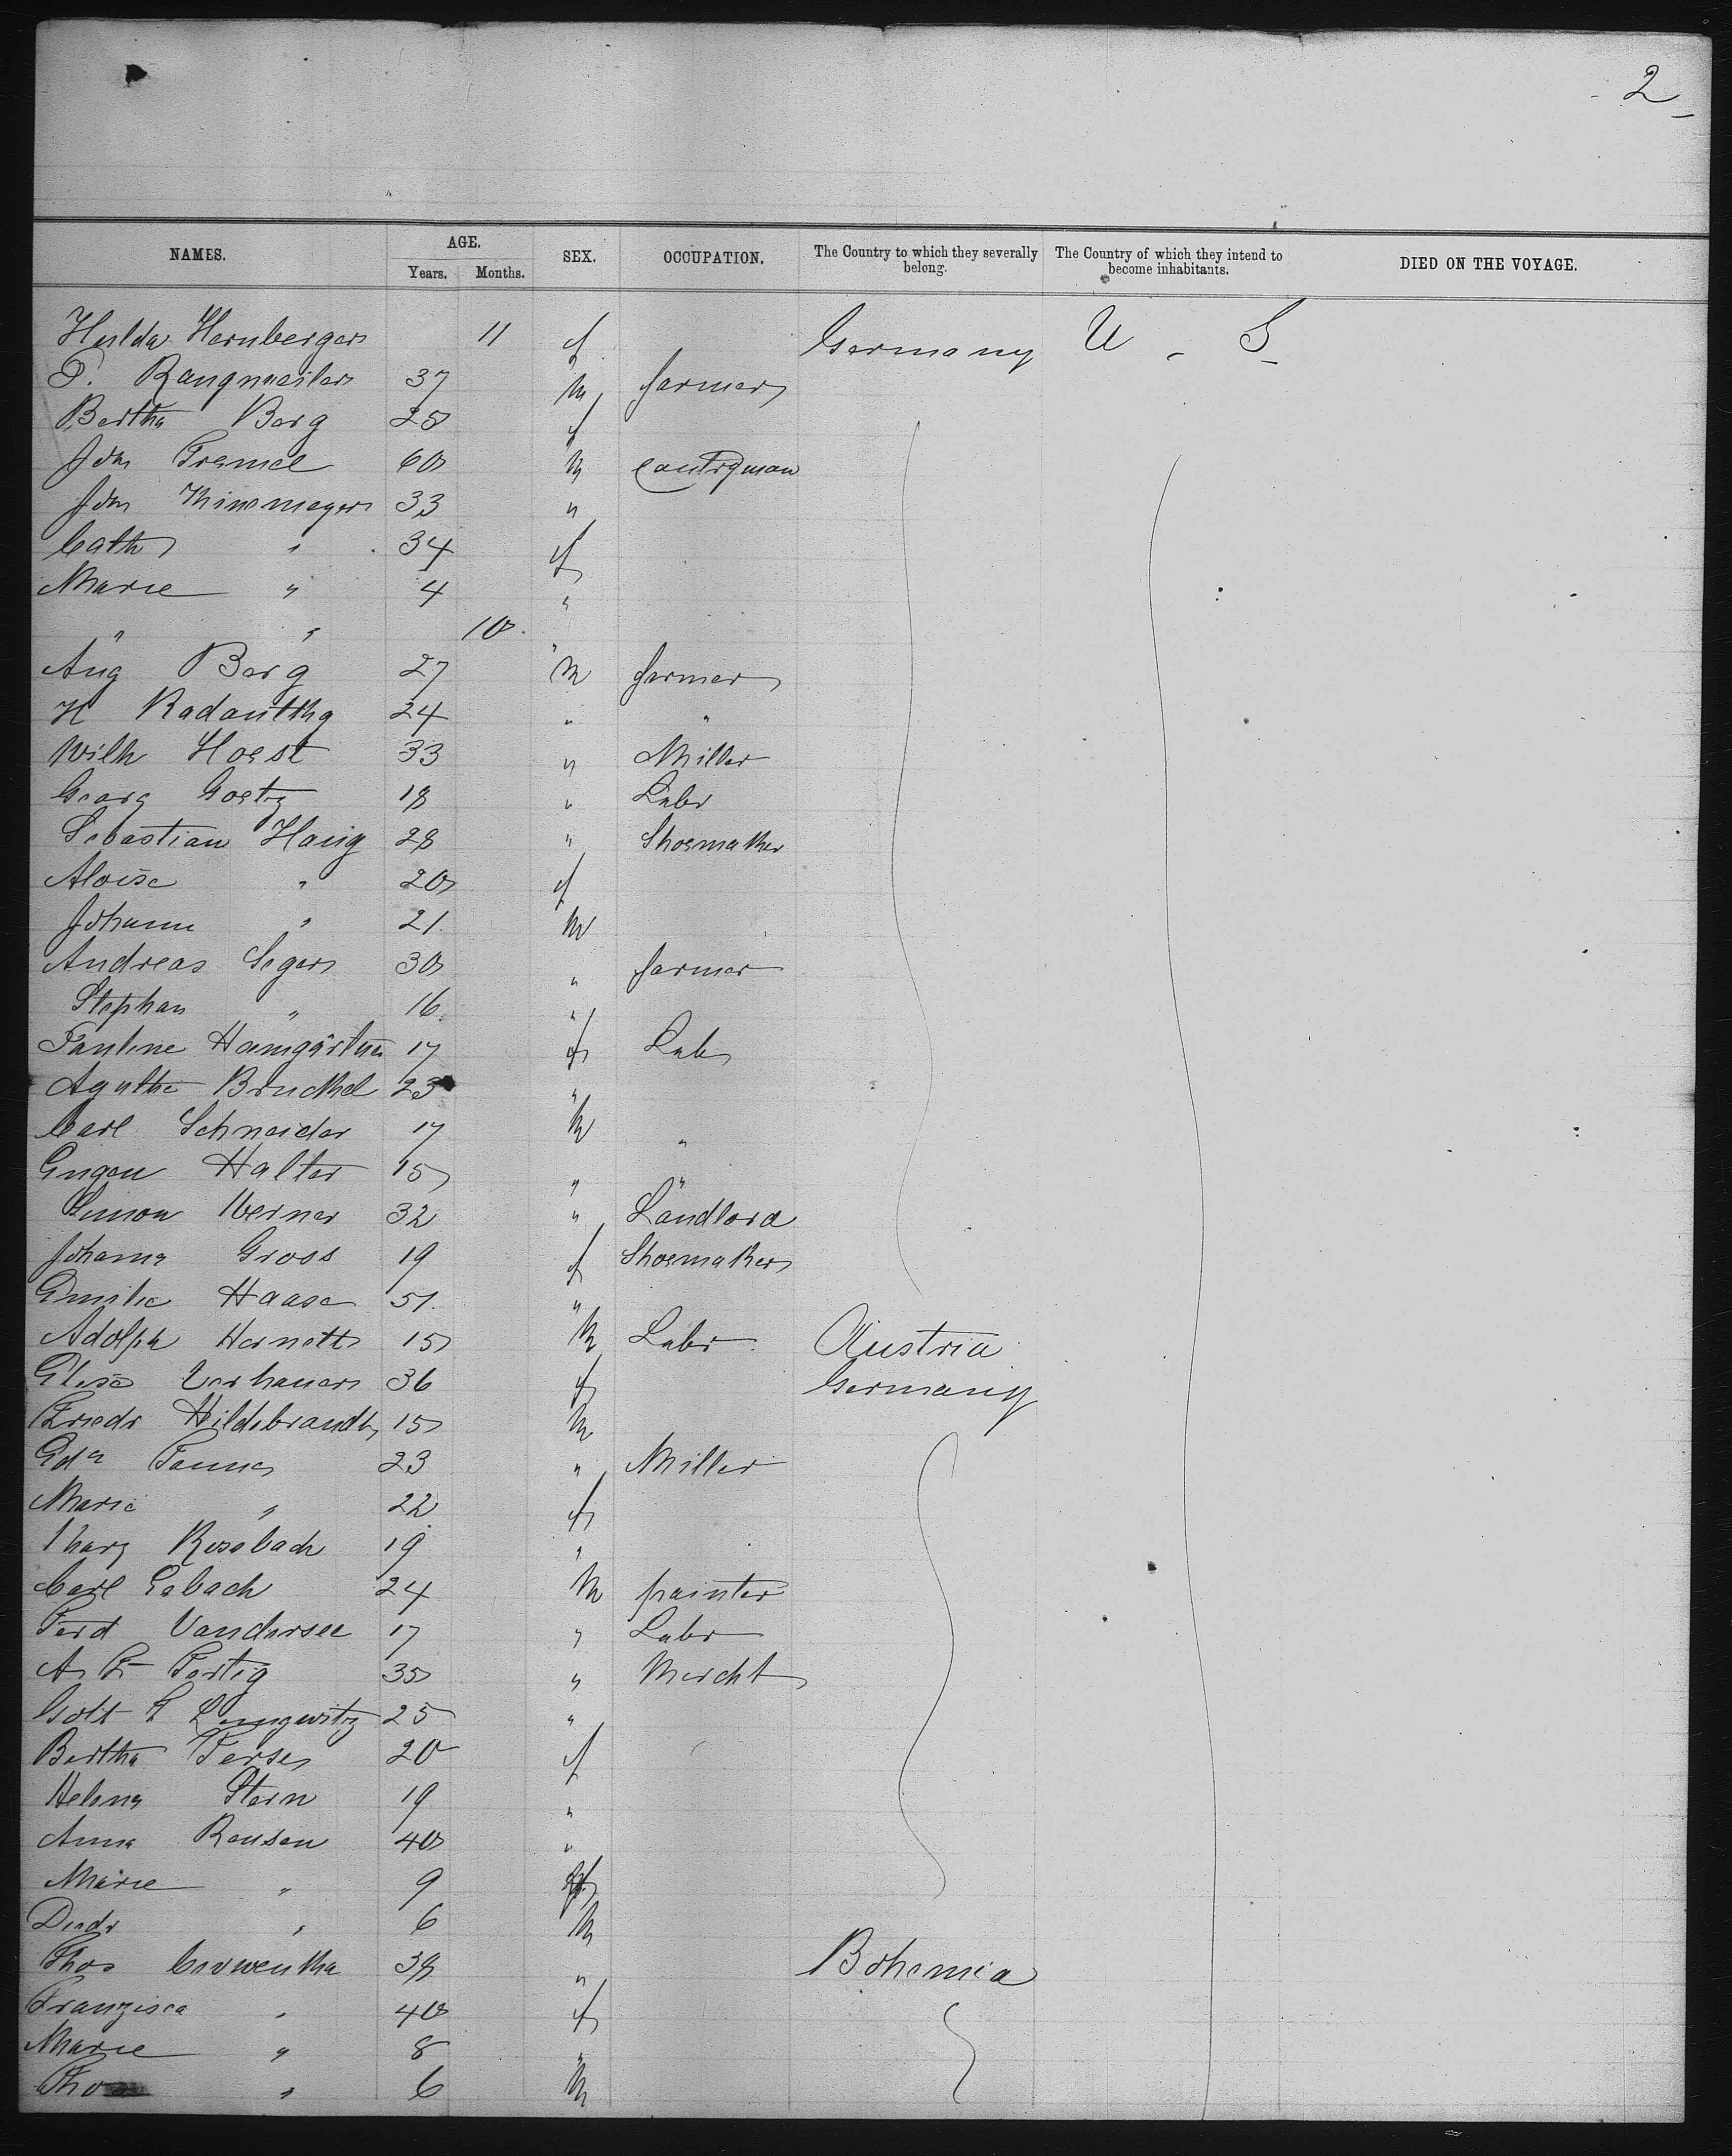 - 2 -
NAMES. AGE. Years. Months. SEX. OCCUPATION. The Country to which they severally belong. The Country of which they intend to become inhabitants. DIED ON THE VOYAGE.
Hulda Hernberger 11 f Germany U. S.
37 m farmer
Bertha Berg 25 f
Joh 60 m
Joh 33 "
Cath " 34 f
Marie " 4 "
" " 10 "
Aug Berg 27 m farmer
H 24 " "
Wilh Horst 33 " Miller
Georg Goetz 18 " Labr
Sebastian Haug 28 " Shoemaker
Aloise " 20 f
Johann " 21 m
Andreas Seger 30 " farmer
Stephan " 16 "
Pauline 17 f Lab
Agathe 23 "
Carl Schneider 17 m "
Eugen Halter 15 " "
Simon Werner 32 " Landlord
Johanna Gross 19 f Shoemaker
Emilie Haase 51 "
Adolph 15 m Labr Austria
Elise 36 f Germany
Friedr Hildebrandt 15 m
23 " Miller
Marie " 22 f
19 "
Carl 24 m painter
Ferd Vandersee 17 " Labr
A F Fertig 35 " Mercht
25 "
Bertha 20 f
Helena Stern 19 "
Anna Rensen 40 "
Marie " 9 f
Diedr " 6 m
Thos 38 " Bohemia
Franzisca " 40 f
Marie " 8 "
Tho " 6 m